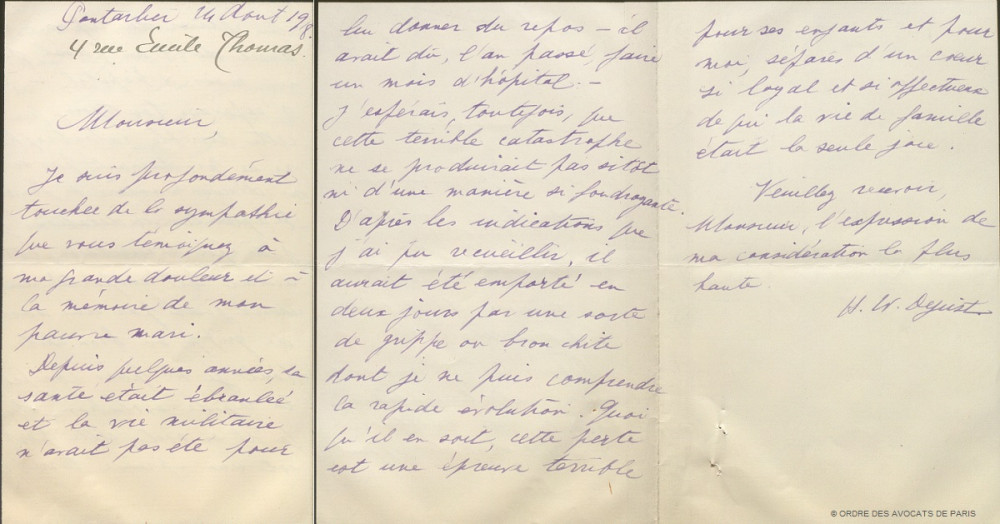 Pontarlier 14 Août 198.
4 rue Emile Thomas.
Monsieur,
Je suis profondément
touchée de la sympathie
que vous témoignez à
ma grande douleur et à
la mémoire de mon
pauvre mari.
Depuis quelques années, sa
santé était ébranlée
et la vie militaire
n'avait pas été pour
lui donner du repos – il
avait dû, l'an passé faire
un mois d'hôpital. –
J'espérais, toutefois, que
cette terrible catastrophe
ne se produirait pas sitôt
ni d'une manière si foudroyante.
D'après les indications que
j'ai pu recueillir, il
aurait été emporté en
deux jours par une sorte
de grippe ou bronchite
dont je ne puis comprendre
la rapide évolution. Quoi
qu'il en soit, cette perte
est une épreuve terrible
pour ses enfants et pour
moi, séparés d'un cœur
si loyal et si affectueux
de qui la vie de famille
était la seule joie.
Veuillez recevoir,
Monsieur, l'expression de
ma considération la plus
haute.
H. W.
© ORDRE DES AVOCATS DE PARIS